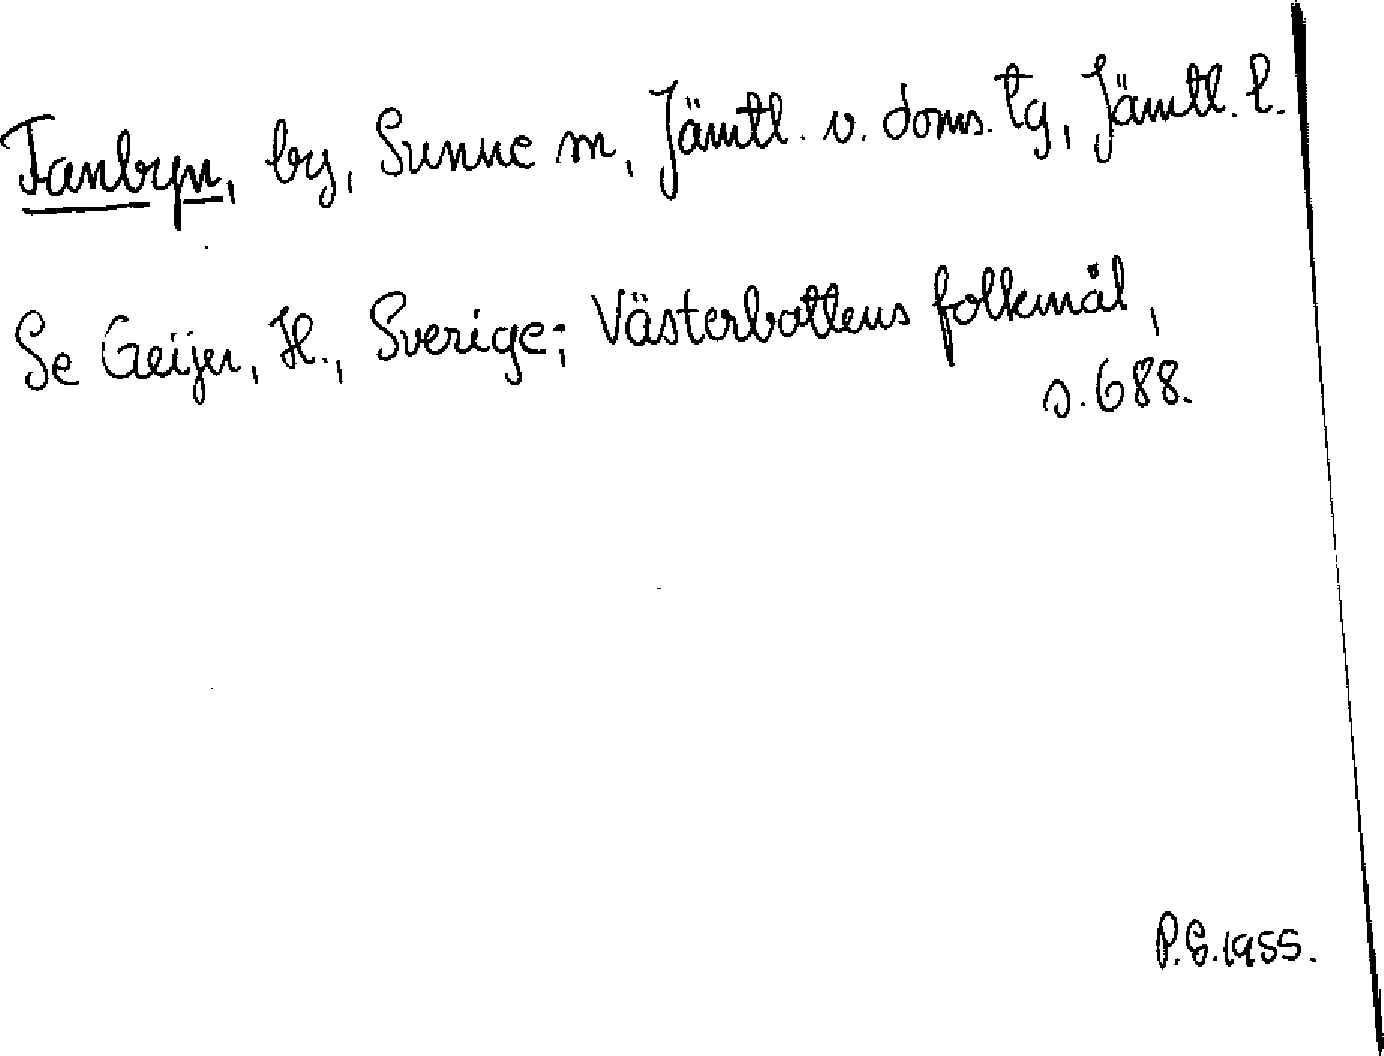 Fanbyn, by, Sunne sn, Jämtl. v. doms. tg, Jämtl. l.
Se Geijer, H., Sverige; Västerbottens folkmål,
s. 688.
P.E. 1955.